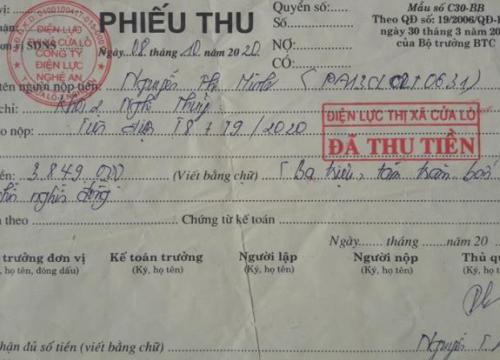 PHIẾU THU
Quyển số:
Mẫu số C30-BB
Số:
Theo QĐ số: 19/2006/QĐ-
ngày 30 tháng 3 năm 20
của Bộ trưởng BTC
ơn vị SDNS
ĐIỆN LỰC
CỬA LÒ
CÔNG TY
ĐIỆN LỰC
NGHỆ AN
Ngày 08 tháng 10 năm 2020
NỢ:
CÓ:
tên người nộp tiền: Nguyễn Thị Minh
chỉ: Khối 2 Nghi Thủy
o nộp: Tiền điện T8 + T9/2020
ĐIỆN LỰC THỊ XÃ CỬA LÒ
ĐÃ THU TIỀN
ền: 3.849.000 (Viết bằng chữ) (Ba triệu, tám trăm bốn
nghìn đồng
n theo Chứng từ kế toán
Ngày tháng năm 20
trưởng đơn vị Kế toán trưởng Người lập Người nộp Thủ qu
, họ tên, đóng dấu) (Ký, họ tên) (Ký, họ tên) (Ký, họ tên) (Ký, họ
hận đủ số tiền (viết bằng chữ) Nguyễn T.